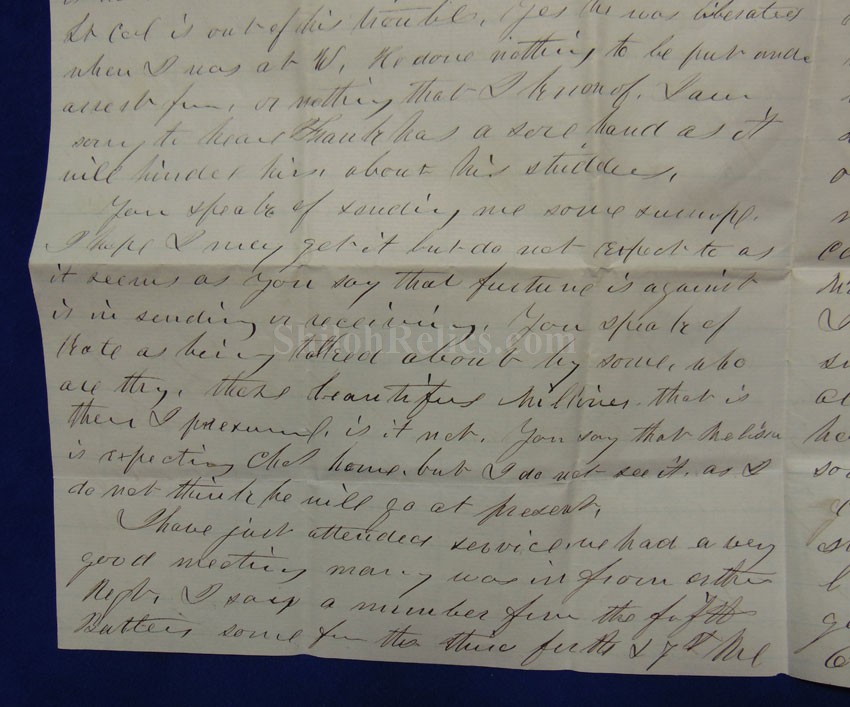 Lt Col is out of his trouble. Yes he was liberated
when I was at W, He done nothing to be put under
arrest for, or nothing that I know of. I am
sorry to hear Frank has a sore hand as it
will hinder him about his studdies,
You speak of sending me some
I hope I may get it but do not expect to as
it seems as you say that fortune is against
is in sending or receiving, You speak of
Kate as being talked about by some, who
are they, those beautiful Milliners that is
them I presume, is it not. You say that Melissa
is expecting Chet home, but I do not see it, as I
do not think he will go at present,
I have just attended service we had a very
good meeting many was in from other
Regt, I saw a number from the fifth
Battery some from the third forth & 7th Me
ShilohRelics.com